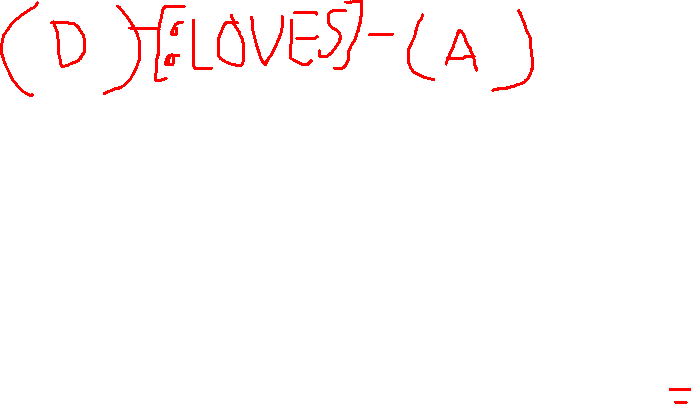 (D)-[:LOVES]-(A)
=